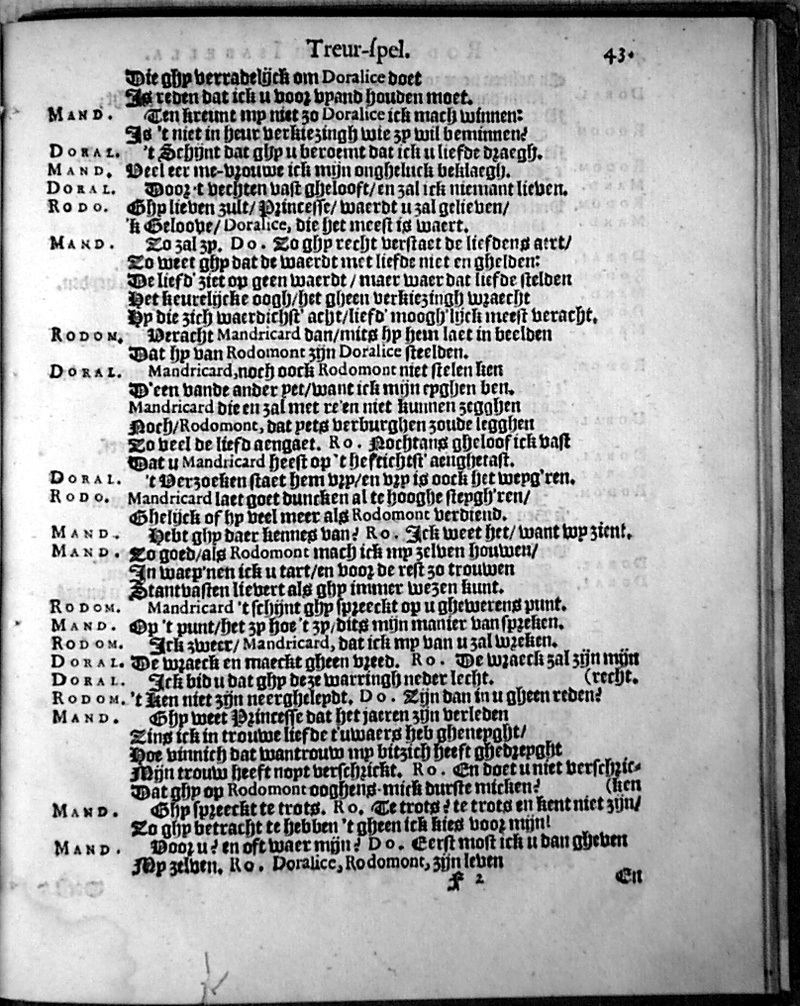 Treur-ſpel. 43.
Die ghy verradelijck om Doralice doet
Is reden dat ick u voor vyand houden moet.
MAND. Ten kreunt my niet zo Doralice ick mach winnen:
Is 't niet in heur verkiezingh wie zy wil beminnen?
DORAL. 't Schijnt dat ghy u beroemt dat ick u liefde draegh.
MAND. Veel eer me-vrouwe ick mijn ongheluck beklaegh.
DORAL. Door 't vechten vast ghelooft/ en zal ick niemant lieven.
RODO. Ghy lieven zult/ Princesse/ waerdt u zal gelieven/
'k Geloove/ Doralice, die het meest is waert.
MAND. Zo zal zy. Do. Zo ghy recht verstaet de liefdens aert/
Zo weet ghy dat de waerdt met liefde niet en ghelden:
De liefd' ziet op geen waerdt / maer waer dat liefde stelden
Het keurelijcke oogh/ het gheen verkiezingh wraecht
Hy die zich waerdichst' acht/ liefd' moogh'lijck meest veracht.
RODOM. Veracht Mandricard dan/ mits hy hem laet in beelden
Dat hy van Rodomont zijn Doralice steelden.
DORAL. Mandricard, noch oock Rodomont niet stelen ken
D'een vande ander yet/ want ick mijn eyghen ben.
Mandricard die en zal met re'en niet kunnen zegghen
Noch/ Rodomont, dat yets verburghen zoude legghen
Zo veel de liefd aengaet. Ro. Nochtans gheloof ick vast
Dat u Mandricard heest op 't heftichtst' aenghetast.
DORAL. 't Verzoeken staet hem vry/ en vry is oock het weyg'ren.
RODO. Mandricard laet goet duncken al te hooghe steygh'ren/
Ghelijck of hy veel meer als Rodomont verdiend.
MAND. Hebt ghy daer kennes van? Ro. Ick weet het/ want wy zient.
MAND. Zo goed/ als Rodomont mach ick my zelven houwen/
In waep'nen ick u tart/ en voor de rest zo trouwen
Stantvasten lievert als ghy immer wezen kunt.
RODOM. Mandricard 't schijnt ghy spreeckt op u ghewerens punt.
MAND. Op 't punt/ het zy hoe 't zy/ dits mijn manier van spreken.
RODOM. Ick zweer/ Mandricard, dat ick my van u zal wreken.
DORAL. De wraeck en maeckt gheen vreed. Ro. De wraeck zal zijn mijn
DORAL. Ick bid u dat ghy deze warringh neder lecht. (recht.
RODOM. 't Ken niet zijn neerghelepdt. Do. Zijn dan in u gheen reden?
MAND. Ghy weet Princesse dat het jaeren zijn verleden
Zins ick in trouwe liefde t'uwaers heb ghenepght/
Hoe vinnich dat wantrouw my bitzich heeft ghedrepght
Mijn trouw heeft noyt verschrickt. Ro. En doet u niet verschric-
Dat ghy op Rodomont ooghens-mick durste micken? (ken
MAND. Ghy spreeckt te trots. Ro. Te trots? te trots en kent niet zijn/
Zo ghy betracht te hebben 't gheen ick kies voor mijn!
MAND. Voor u? en oft waer mijn? Do. Eerst most ick u dan gheven
My zelven. Ro. Doralice, Rodomont, zijn leven
F 2 En